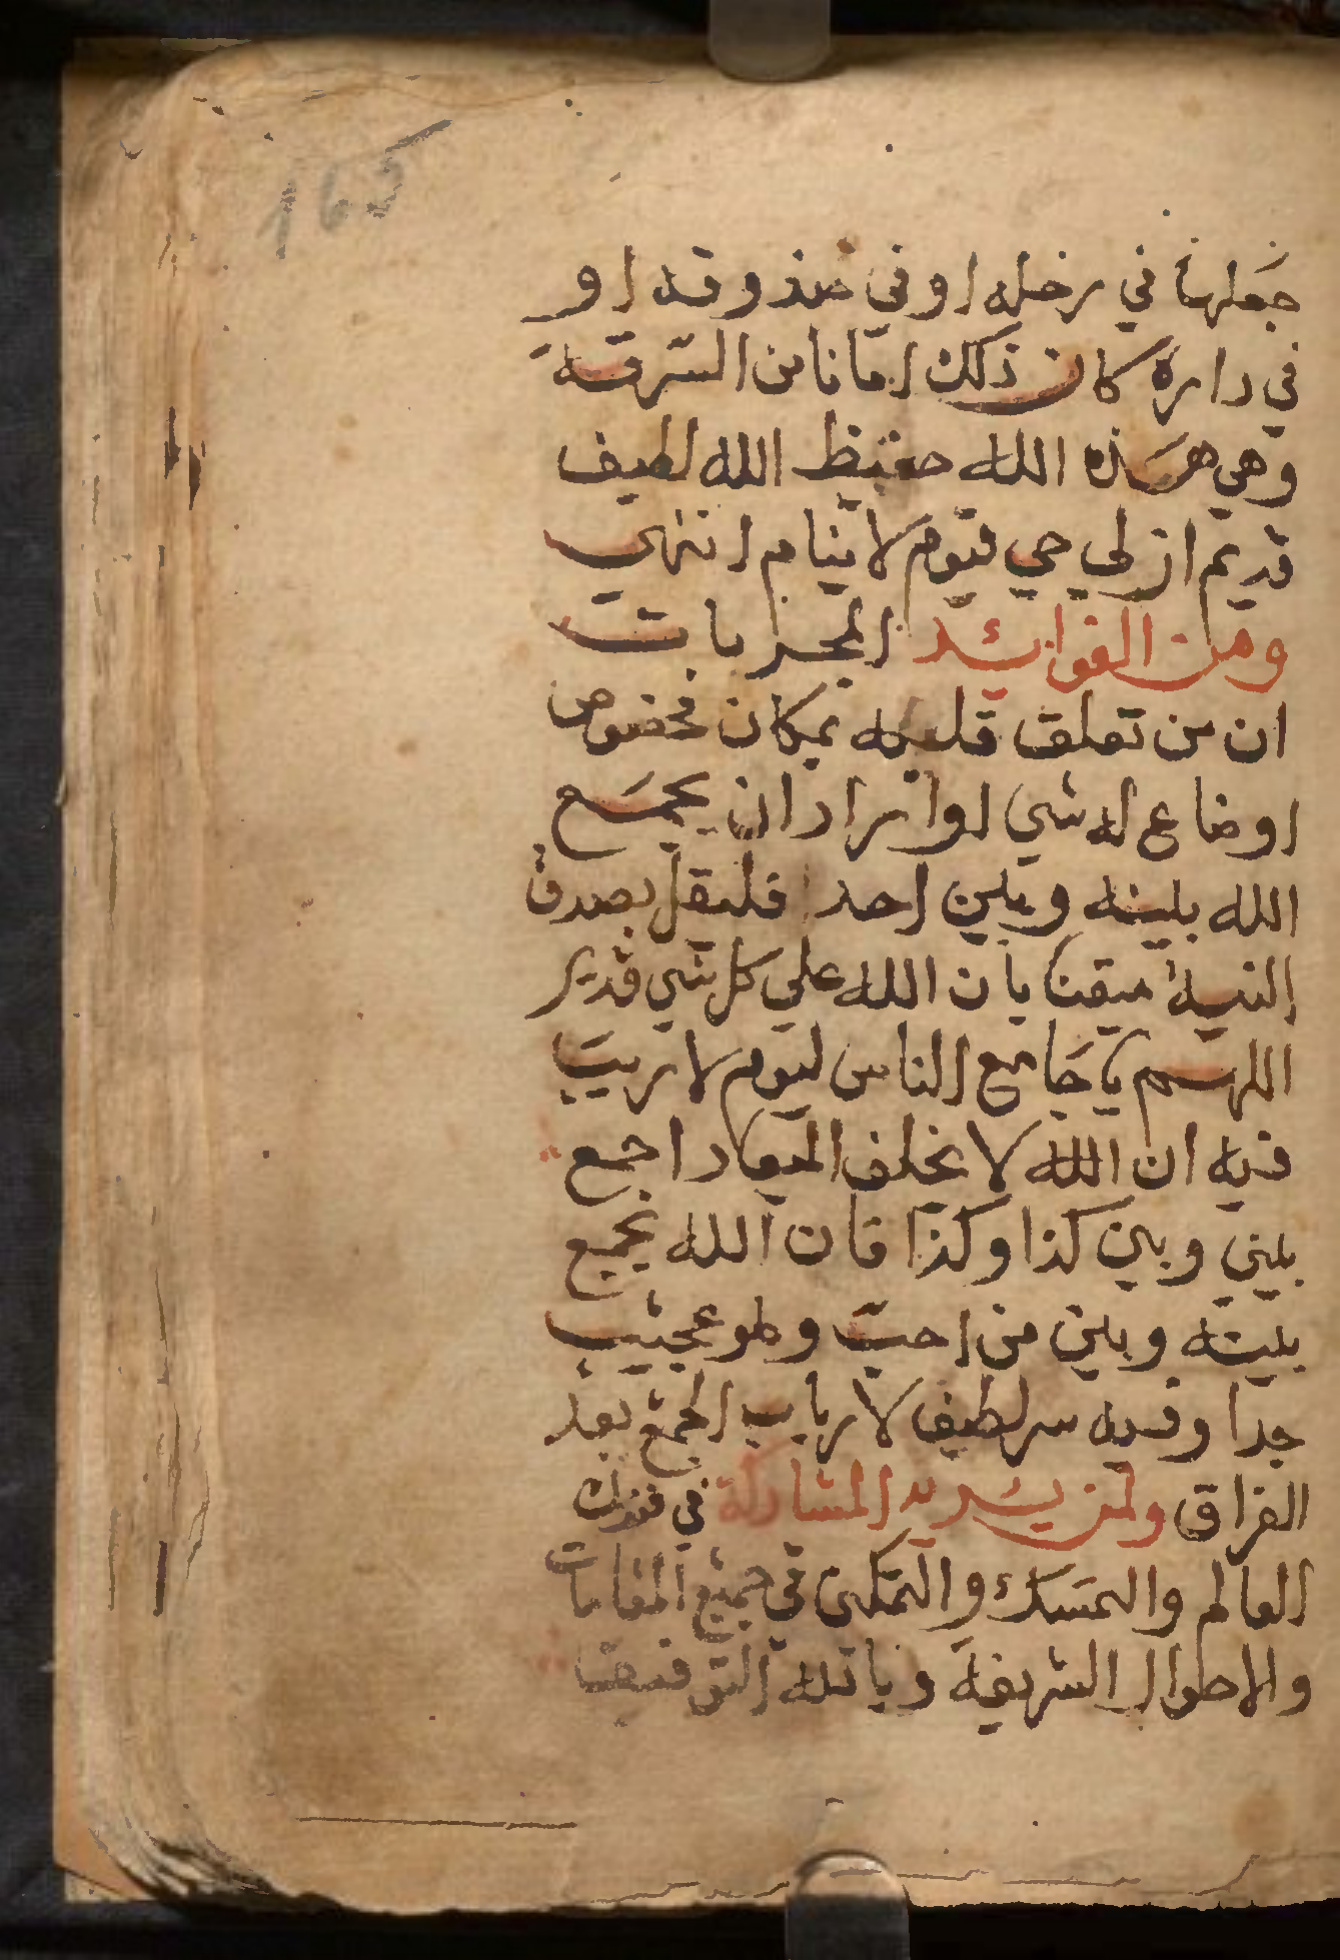 165
جعلها في رحله او في صندوقه او
في داره كان ذلك امانا من السرقة
وهي هذه الله حفيظ الله لطيف
قديم ازلي حي قيوم لا ينام انتهي
ومن الفوائد المجربات
ان من تعلق قلبه بمكان مخصوص
اوضاع له شي اواراد ان يجمع
الله بينه وبين احد فليقل بصدق
النية ميقنا بان الله علي كل شي قدير
اللهم يا جامع الناس ليوم لا ريب
فيه ان الله لا يخلف الميعاد اجمع
بيني وبين كذا وكذا فان الله يجمع
بينه وبين من احب وهو عجيب
جدا وفيه سر لطيف لارباب الجمع بعد
الفراق ولمن يريد المشاركة في
العالم والتمسك والتمكن في جميع المقامات
والاطوال الشريفة و بالله التوفيق